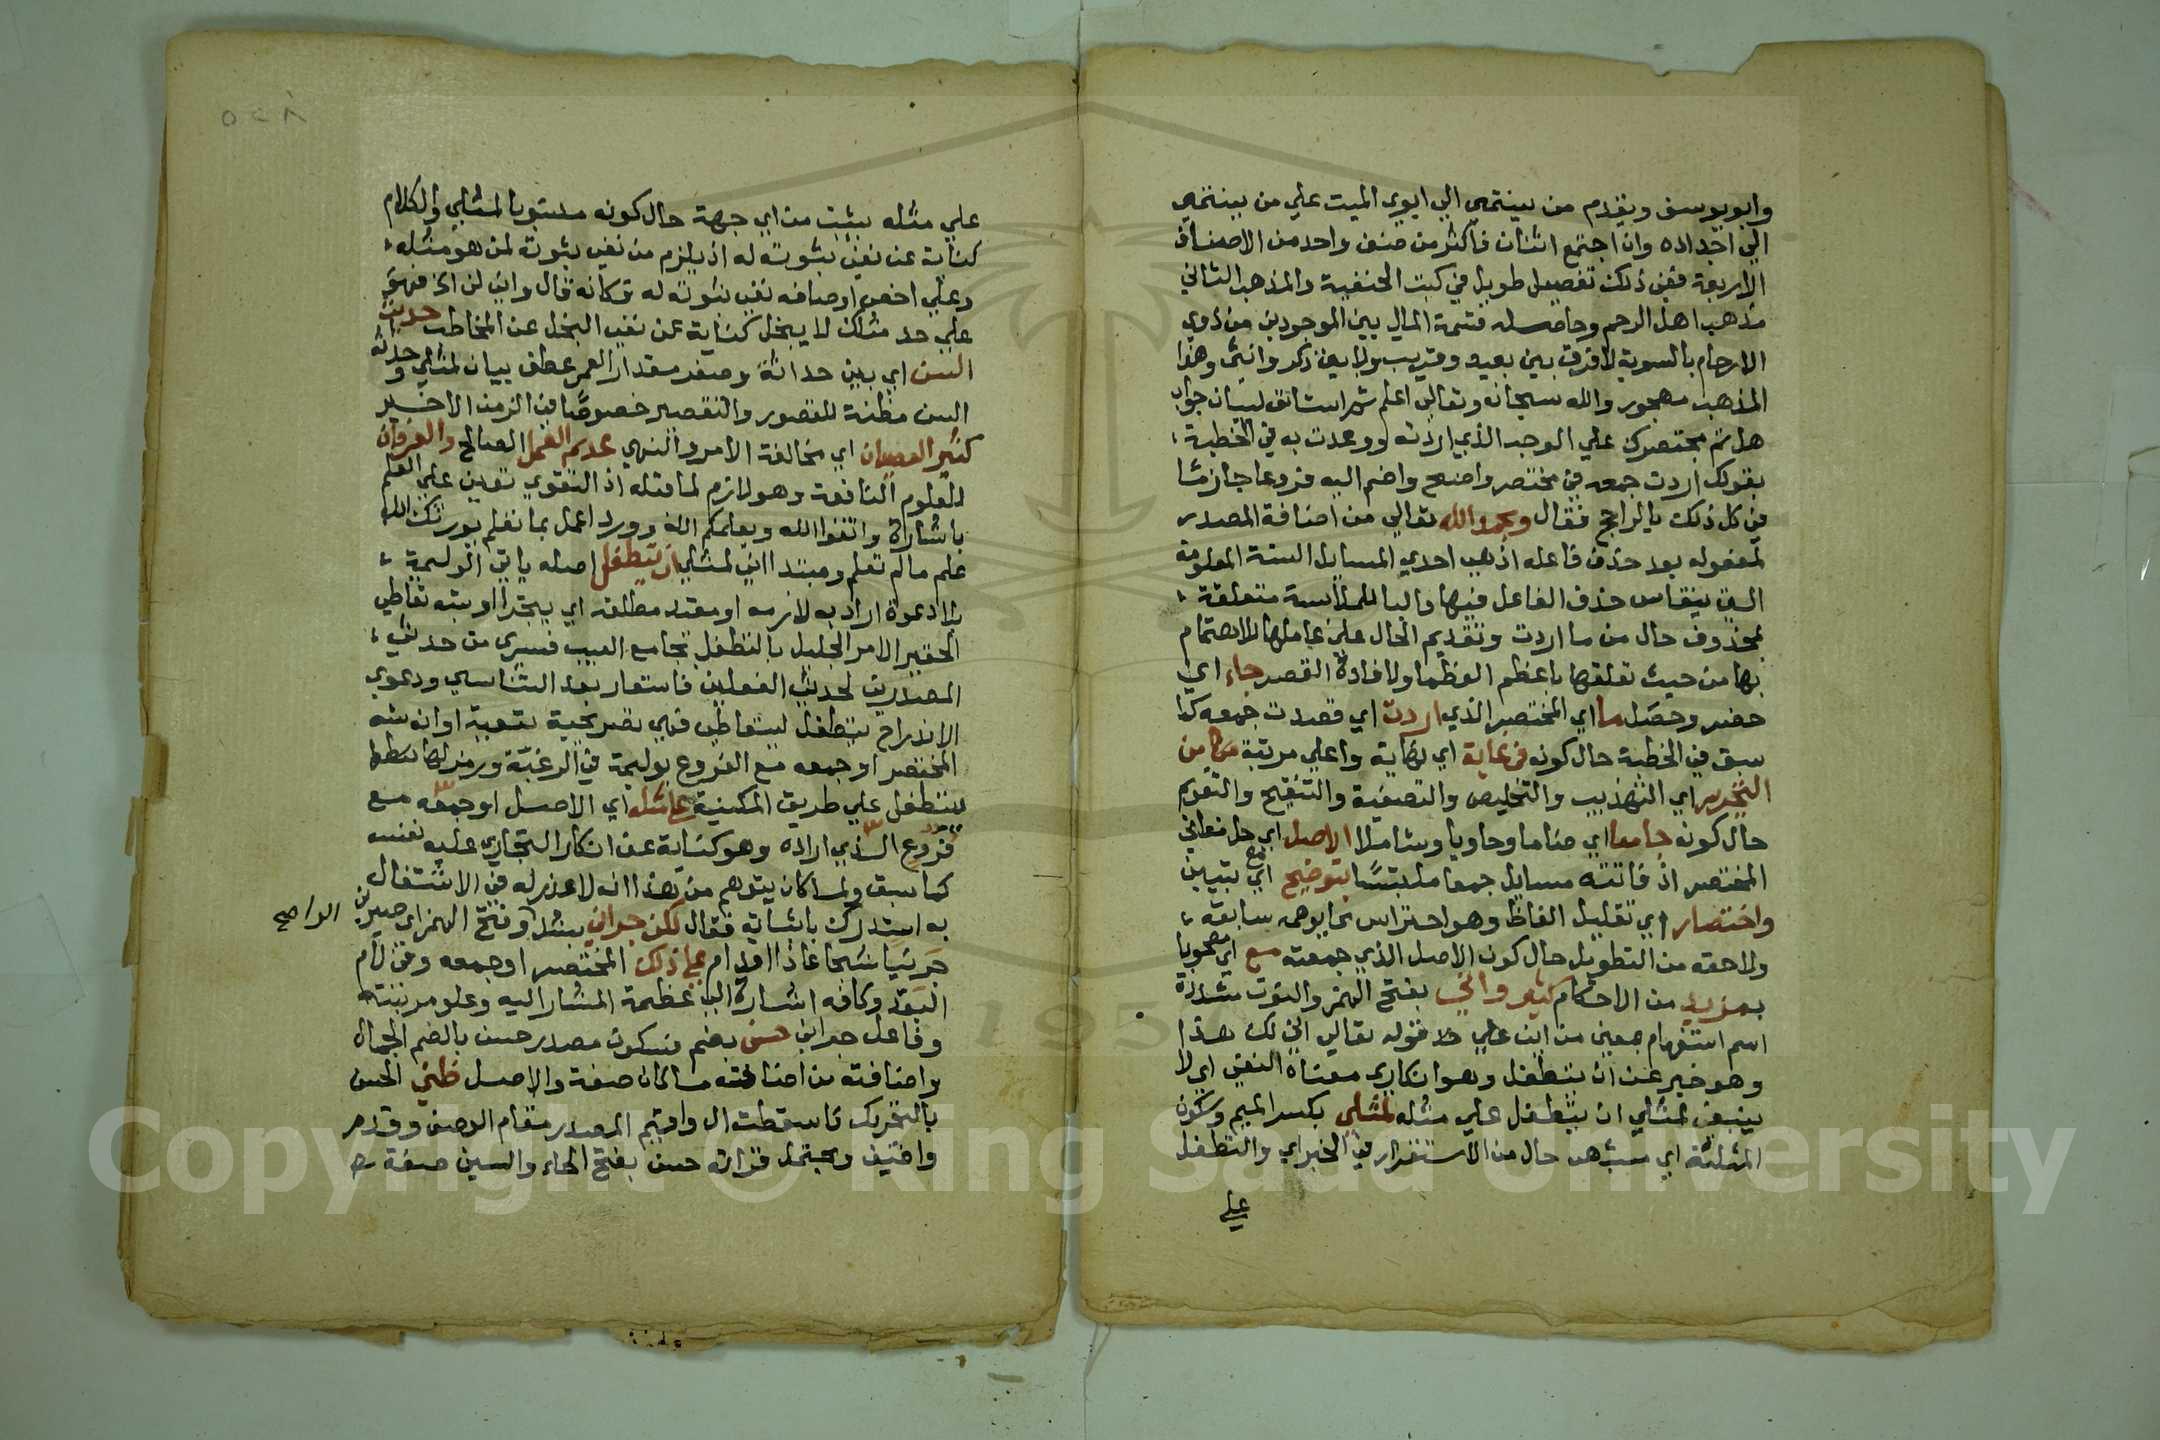 وابويوسف ويقدم من ينتمي الي ابوي الميت علي من ينتمي
الي اجداده وان اجتمع اثنان فاكثر من صنف واحد من الاصناف
الاربعة ففي ذلك تفصيل طويل في كتب الحنفية والمذهب الثاني
مذهب اهل الرحم وحاصله قسمة المال بين الموجودين من ذوي
الارحام بالسوية لا فرق بين بعيد وقريب ولا بين ذكر وانثي وهذا
المذهب مهجور والله سبحانه وتعالي اعلم ثم استانف لبيان جواب
هل تم مختصرك علي الوجه الذي اردته ووعدت به في الخطبة
بقولك اردت جمعه في مختصر واضح واضم اليه فروعا جازما
في كل ذلك بالراجح فقال وبحمد الله تعالي من اضافة المصدر
لمفعوله بعد حذف فاعله اذ هي احدي المسايل الستة المعلومة
التي ينقاس حذف الفاعل فيها والبا للملابسة متعلقة
بمحذوف حال من ما اردت وتقديم الحال علي عاملها للاهتمام
بها من حيث تعلقها باعظم العظما ولافادة القصر جاء اي
حضر وحصل ما اي المختصر الذي اردت اي قصدت جمعه كما
سبق في الخطبة حال كونه في غاية اي نهاية واعلي مرتبة من
التحرير اي التهذيب والتخليص والتصفية والتنقيح والتقويم
حال كونه جامعا اي ضاما وحاويا وشاملا الاصل اي جل معاني
المختصر اذ فاتته مسايل جمعا ملتبسا بتوضيح اي تبيين
واختصار اي تقليل الفاظ وهو احتراس مما يوهمه سابقه
ولاحقه من التطويل حال كون الاصل الذي جمعته مع اي مصحوبا
بمزيد من الاحكام كثير واني بفتح الهمز والنون مشددة
اسم استفهام بمعني من اين علي حد قوله تعالي اني لك هذا
وهو خبر عن ان يتطفل وهو انكاري معناه النفي اي لا
ينبغي لمثلي ان يتطفل علي مثله لمثلي بكسر الميم وسكون
المثلثة اي شبهي حال من الاستقرار في الخبر اي والتطفل
علي
علي مثله يثبت من اي جهة حال كونه منسوبا لمثلي والكلام
كناية عن نفي ثبوته له اذ يلزم من نفي ثبوته لمن هو مثله
وعلي اخص اوصافه نفي ثبوته له فكانه قال واني لن اك فهو
علي حد مثلك لا يبخل كناية عن نفي البخل عن المخاطب حديث
السن اي بين حداثة وصغر مقدار العمر عطف بيان لمثلي وحداثة
السن مظنة للقصور والتقصير خصوصا في الزمن الاخير
كثير العصيان اي مخالفة الامر والنهي عديم العمل الصالح والعرفان
للعلوم النافعة وهو لازم لما قبله اذ التقوي تعين علي العلم
باشارة واتقوا الله ويعلمكم الله وورد اعمل بما تعلم يورثك الله
علم ما لم تعلم ومبتدا اني لمثلي ان يتطفل اصله ياتي الوليمة
بلا دعوة اراد به لازمه او مقيد مطلقه اي يجترا او شبه تعاطي
الحقير الامر الجليل بالتطفل بجامع العيب فسري من حدثي
المصدرين لحدثي الفعلين فاستعار بعد التناسي ودعوي
الاندراج يتطفل ليتعاطي فهي تصريحية تبعية او انه شبه
المختصر او جمعه مع الفروع بوليمة في الرغبة ورمز لها
يتطفل علي طريق المكنية علي مثله اي الاصل او جمعه مع
فروع الذي اراده وهو كناية عن انكار التجاري عليه نفسه
كما سبق ولما كان يتوهم من هذا انه لا عذر له في الاشتغال
به استدرك باثباته فقال لكن جراني بشد وفتح الهمز اي صيرني
الواضح
جريئا شجاعا ذا اقدام علي ذلك المختصر او جمعه وفي لام
البعد وكافه اشارة الي عظمة المشار اليه وعلو مرتبته
وفاعل جراني حسن بضم فسكون مصدر حسن بالضم الجمال
واضافته من اضافته ما كان صفة والاصل ظني الحسن
بالتحريك فاسقطت ال واقيم المصدر مقام الوصف وقدم
واضيف ويحتمل قراته حسن بفتح الحاء والسين صفة